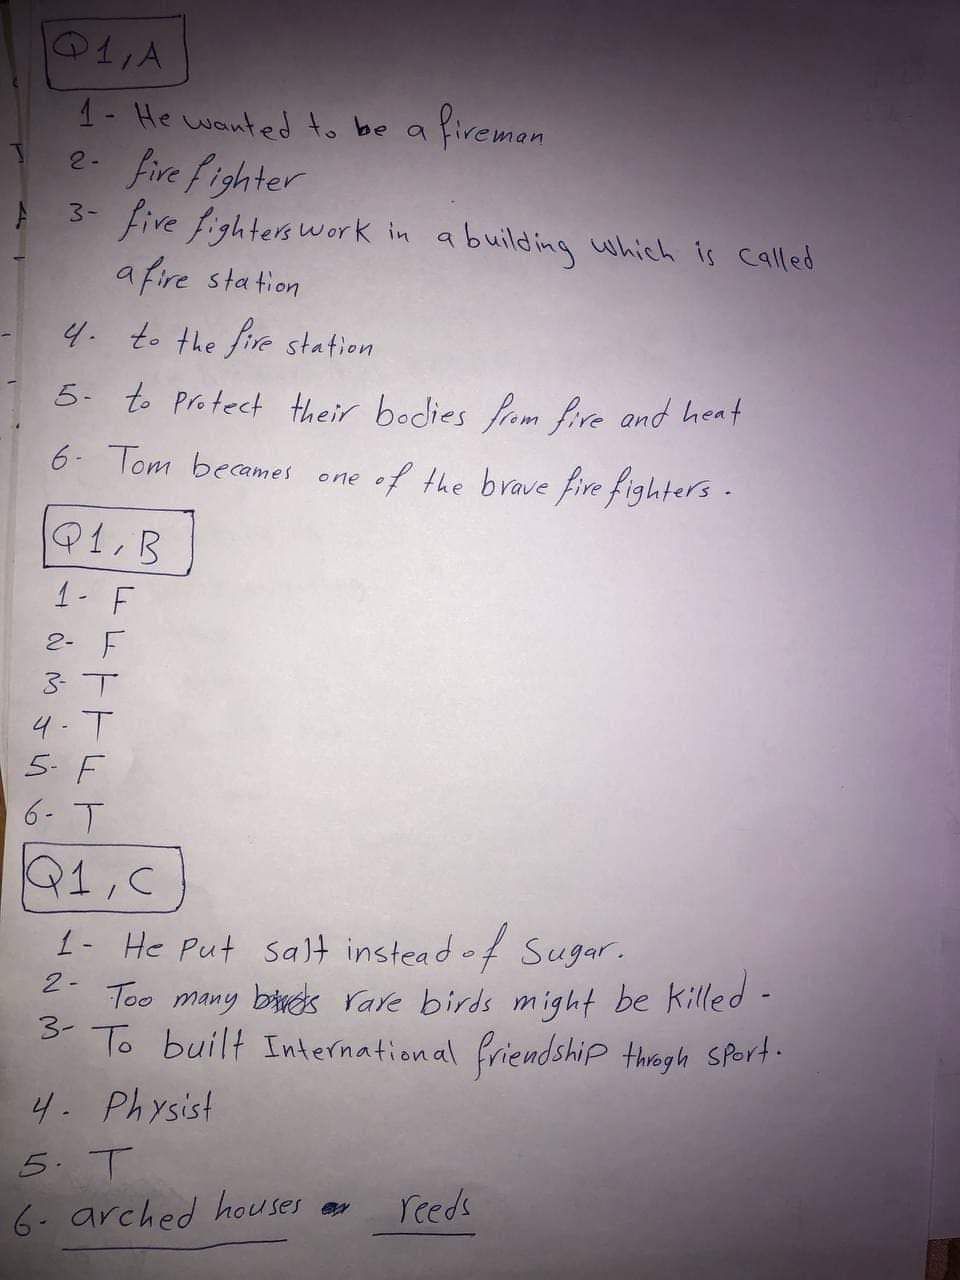 Q1,A
1- He wanted to be a fireman
2- fire fighter
3- five fighters work in a building which is called
a fire station
4- to the fire station
5- to Protect their bodies from fire and heat
6- Tom becames one of the brave fire fighters.
Q1,B
1- F
2- F
3- T
4- T
5- F
6- T
Q1,C
1- He Put salt instead of Sugar.
2- Too many rare birds might be killed -
3- To built International friendship throgh sport.
4- Physist
5- T
6- arched houses reeds